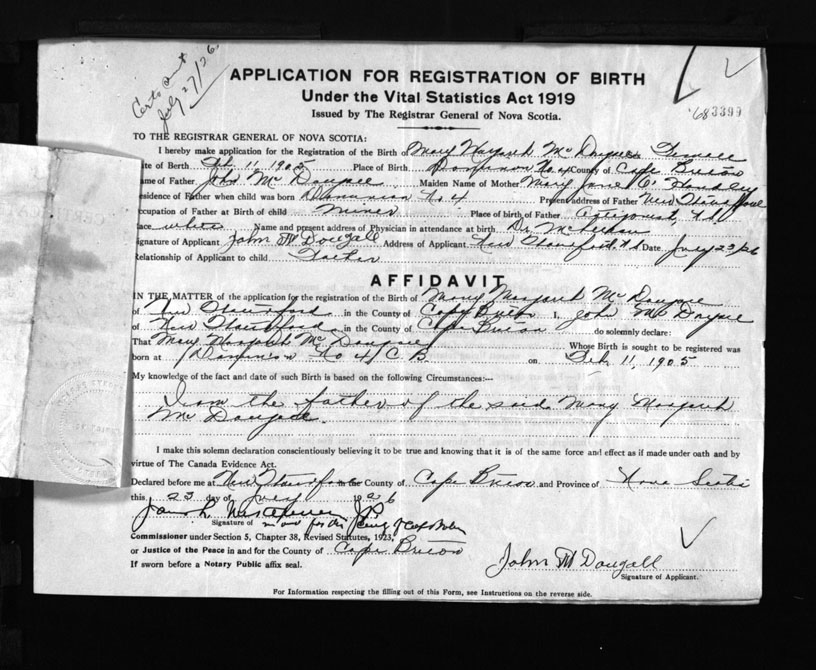 Certs Sent
July 27/26
APPLICATION FOR REGISTRATION OF BIRTH
Under the Vital Statistics Act 1919
Issued by The Registrar General of Nova Scotia.
683399
TO THE REGISTRAR GENERAL OF NOVA SCOTIA:
I hereby make application for the Registration of the Birth of Mary Margaret McDougall Female
ate of Birth Feb. 11, 1905 Place of Birth Dominion No 4 County of Cape Breton
ame of Father John McDougall Maiden Name of Mother Mary Jane O'Handley
esidence of Father when child was born Dominion No 4 Present address of Father New Waterford
ccupation of Father at Birth of child Miner Place of birth of Father Antigonish, N.S.
ace white Name and present address of Physician in attendance at birth Dr.
ignature of Applicant John McDougall Address of Applicant New Waterford N.S. Date July 23/26
Relationship of Applicant to child Father
AFFIDAVIT
IN THE MATTER of the application for the registration of the Birth of Mary Margaret McDougall
of New Waterford in the County of Cape Breton I, John McDougall
of New Waterford in the County of Cape Breton do solemnly declare:
That Mary Margaret McDougall Whose Birth is sought to be registered was
born at Dominion No 4, C.B. on Feb. 11, 1905
My knowledge of the fact and date of such Birth is based on the following Circumstances:—
I am the father of the said Mary Margaret
McDougall.
I make this solemn declaration conscientiously believing it to be true and knowing that it is of the same force and effect as if made under oath and by
virtue of The Canada Evidence Act.
Declared before me at New Waterford in the County of Cape Breton and Province of Nova Scotia
this 23 day of July 1926
Signature of in and for the
Commissioner under Section 5, Chapter 38, Revised Statutes, 1923,
or Justice of the Peace in and for the County of Cape Breton
If sworn before a Notary Public affix seal.
John McDougall
Signature of Applicant.
For Information respecting the filling out of this Form, see Instructions on the reverse side.